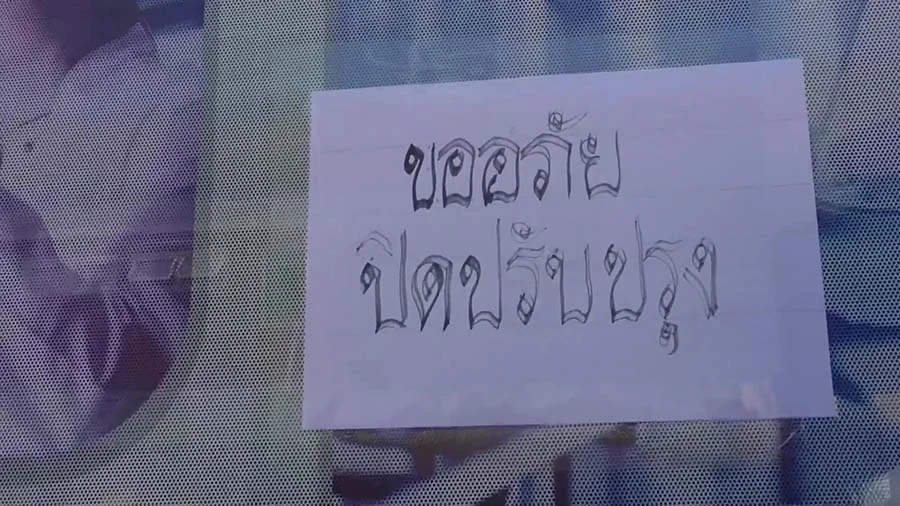 ขออภัย
ปิดปรับปรุง